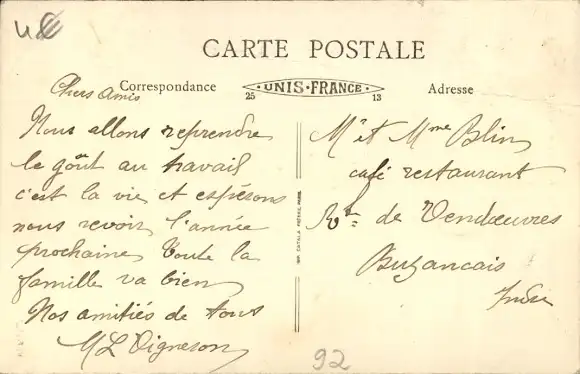 CARTE POSTALE
Correspondance
UNIS-FRANCE
25 13
Adresse
Chers amis
Nous allons reprendre
le goût au travail
c'est la vie et espérons
nous revoir l'année
prochaine Toute la
famille va bien
Nos amitiés de tous
ML Vigneron
Mr et Mme Blin
café restaurant
Rte de Vendœuvres
Buzancais
Indre
IMP. CATALA FRÈRES, PARIS
92